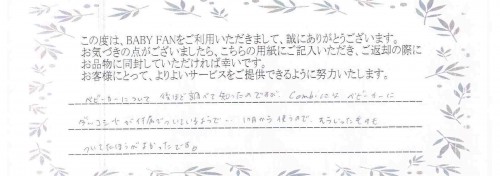 この度は、BABY FANをご利用いただきまして、誠にありがとうございます。
お気づきの点がございましたら、こちらの用紙にご記入いただき、ご返却の際に
お品物に同封していただければ幸いです。
お客様にとって、よりよいサービスをご提供できるように努力いたします。
ベビーカーについて 後ほど調べて知ったのですが、Combiにはベビーカーに
が付属でついているようで… 1ヶ月から使うので、そういったものも
ついてたほうがよかったです。